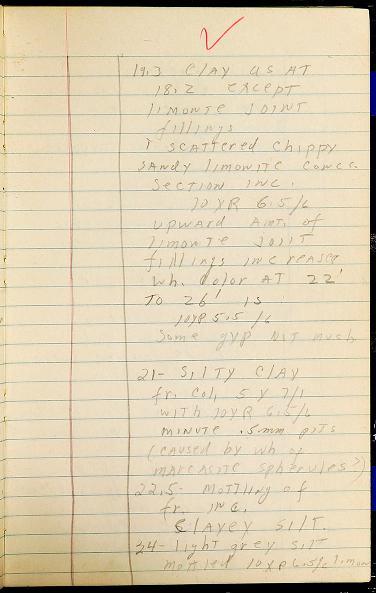 19.3 CLAY as AT
18.2 except
limonte JOINT
fillings
& SCATTERED Chippy
SANDY limonite CONCS.
SECTION INC.
10 YR 6.5/6
upward Amt. of
limonte JOIIT
fillings increase
Wh. Color AT 22'
TO 26' is
10YR 5.5/6
Some gyp NOT much
21- SILTY CLAY
fr. Col, 5 Y 7/1
with 10YR 6.5/6
MINUTE .5mm pits
(CAUSED by wh of
MARCASITE Spherules?)
22.5- Mottling of
fr. INC.
CLAYEY SILT.
24- light grey SILT
mottled 10YR 6.5/6 limon